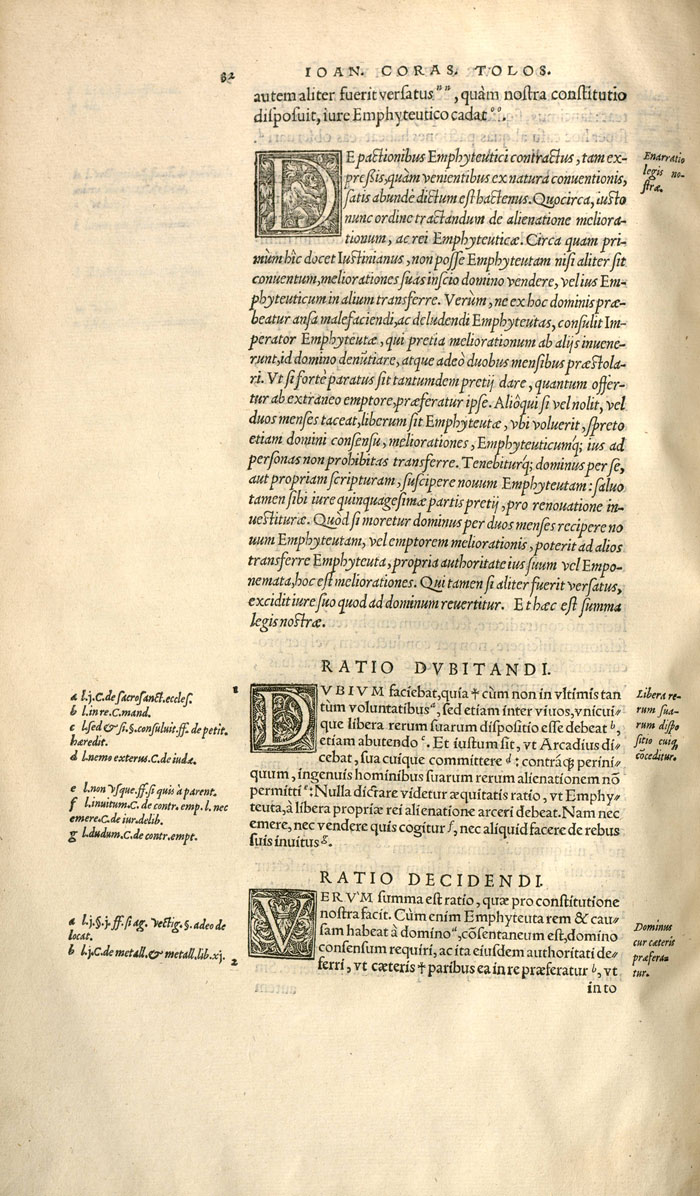 82
IOAN. CORAS. TOLOS.
autem aliter fuerit versatus nn, quàm nostra constitutio
disposuit, iure Emphyteutico cadat oo.
Enarratio
legis no-
stræ.
DE pactionibus Emphyteutici contractus, tam ex-
pressis, quàm venientibus ex natura conuentionis,
satis abundè dictum est hactenus. Quocirca, iusto
nunc ordine tractandum de alienatione meliora-
tionum, ac rei Emphyteuticæ. Circa quam pri-
mùm hîc docet Iustinianus, non posse Emphyteutam nisi aliter sit
conuentum, meliorationes suas inscio domino vendere, vel ius Em-
phyteuticum in alium transferre. Verùm, ne ex hoc dominis præ-
beatur ansa malefaciendi, ac deludendi Emphyteutas, consulit Im-
perator Emphyteutæ, qui pretia meliorationum ab alijs inuene-
runt, id domino denũtiare, atque adeò duobus mensibus præstola-
ri. Vt si fortè paratus sit tantumdem pretij dare, quantum offer-
tur ab extraneo emptore, præferatur ipse. Aliôqui si vel nolit, vel
duos menses taceat, liberum sit Emphyteutæ, vbi voluerit, spreto
etiam domini consensu, meliorationes, Emphyteuticumq; ius ad
personas non prohibitas transferre. Tenebiturq; dominus per se,
aut propriam scripturam, suscipere nouum Emphyteutam: saluo
tamen sibi iure quinquagesimæ partis pretij, pro renouatione in-
uestituræ. Quòd si moretur dominus per duos menses recipere no
uum Emphyteutam, vel emptorem meliorationis, poterit ad alios
transferre Emphyteuta, propria authoritate ius suum vel Empo-
nemata, hoc est meliorationes. Qui tamen si aliter fuerit versatus,
excidit iure suo quod ad dominum reuertitur. Et hæc est summa
legis nostræ.
RATIO DVBITANDI.
a l.j.C. de sacrosanct. eccles.
b l. in re. C. mand.
c l. sed & si. §. consuluit. ff. de petit.
hæredit.
d l. nemo exterus. C. de iudæ.
e l. non vsque. ff. si quis à parent.
f l. inuitum. C. de contr. emp. l. nec
emere. C. de iur. delib.
g l. dudum. C. de contr. empt.
1
DVBIVM faciebat, quia † cùm non in vltimis tan
tùm voluntatibus a, sed etiam inter viuos, vnicui-
que libera rerum suarum dispositio esse debeat b,
etiam abutendo c. Et iustum sit, vt Arcadius di-
cebat, sua cuique committere d: contráq; perini-
quum, ingenuis hominibus suarum rerum alienationem nõ
permitti e: Nulla dictare videtur æquitatis ratio, vt Emphy-
teuta, à libera propriæ rei alienatione arceri debeat. Nam nec
emere, nec vendere quis cogitur f, nec aliquid facere de rebus
suis inuitus g.
Libera re-
rum sua-
rum dispo
sitio cuiq;
cõceditur.
RATIO DECIDENDI.
a l.j.§.j. ff. si ag. vectig. §. adeo de
locat.
b l.j.C. de metall. & metall. lib. xj.
2
VERVM summa est ratio, quæ pro constitutione
nostra facit. Cùm enim Emphyteuta rem & cau-
sam habeat à domino a, cõsentaneum est, domino
consensum requiri, ac ita eiusdem authoritati de-
ferri, vt cæteris † paribus ea in re præferatur b, vt
Dominus
cur cæteris
præfera-
tur.
in to